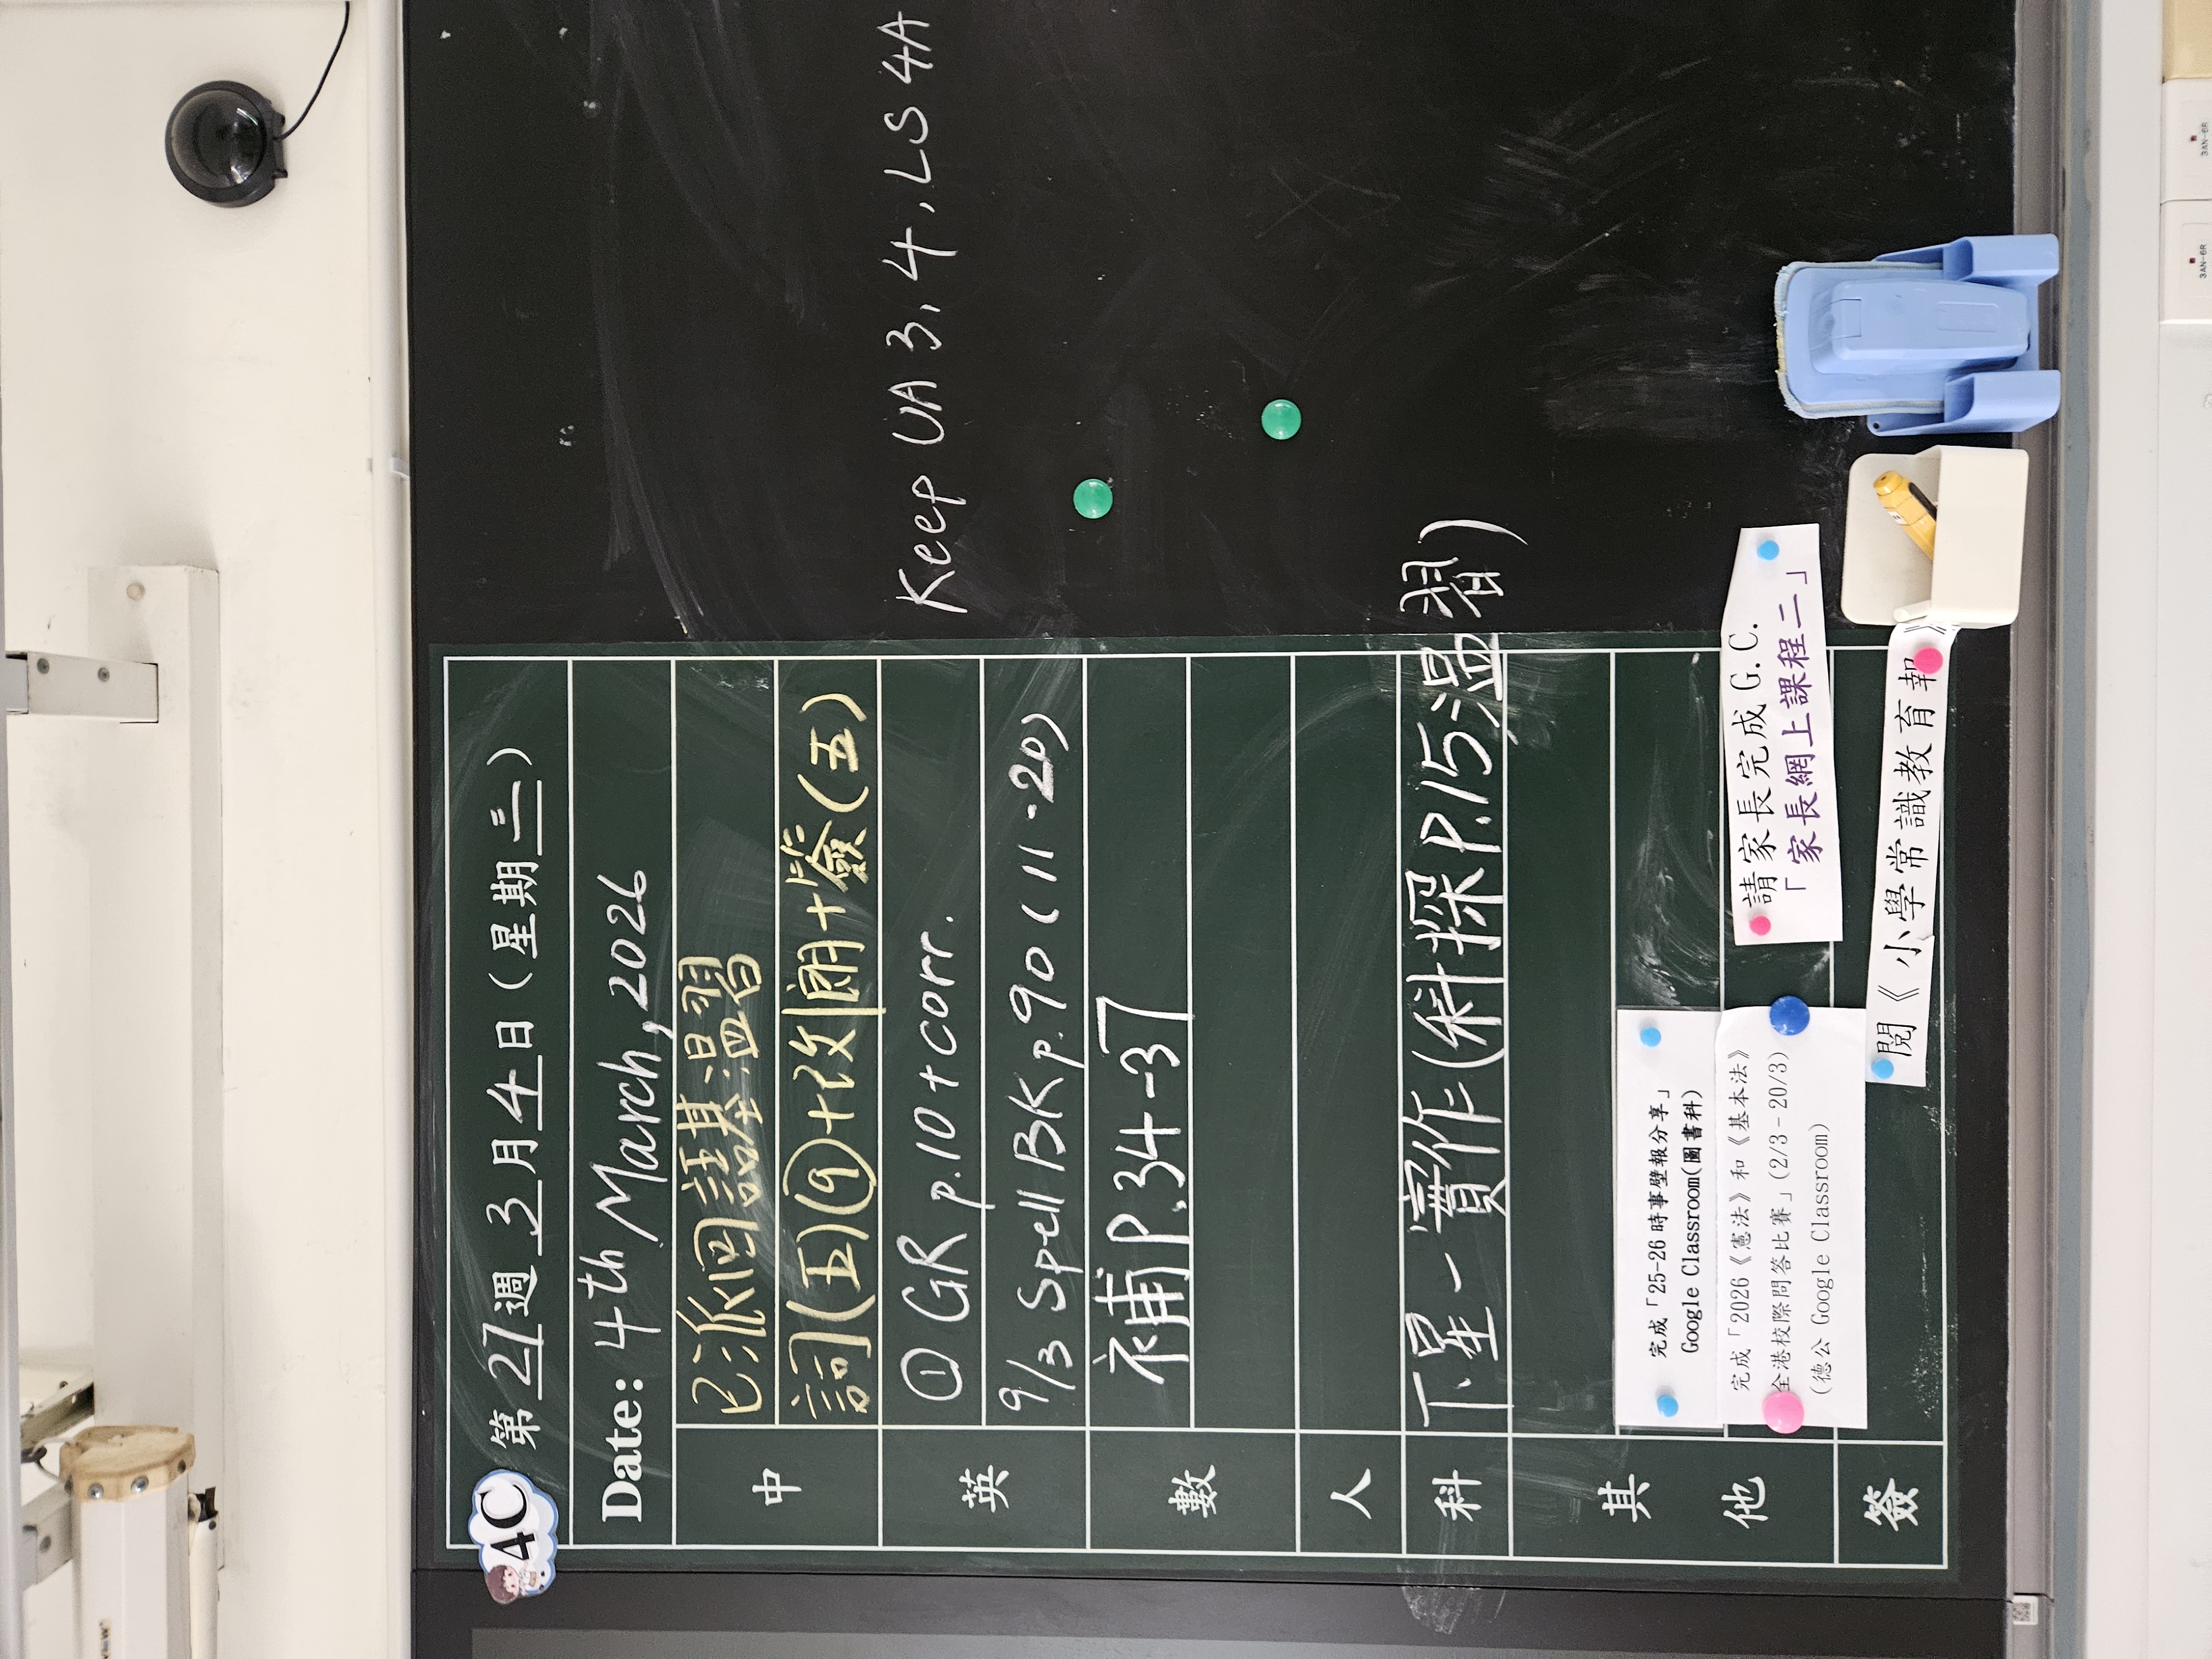 4C
第27週 3月4日(星期三)
Date: 4th March, 2026
中
已派回語基溫習
詞(五)(9)+改附+簽(五)
英
① GR p.10+corr.
Keep UA 3, 4, LS 4A
9/3 Spell BK p.90 (11-20)
數
補P.34-37
人
科
下星一實作(科探P.15溫習)
其他
完成「25-26時事壁報分享」
Google Classroom(圖書科)
完成「2026《憲法》和《基本法》
全港校際問答比賽」(2/3-20/3)
(德公 Google Classroom)
請家長完成 G.C.
「家長網上課程二」
簽
閱《小學常識教育報》
3AN-6R
3AN-6R